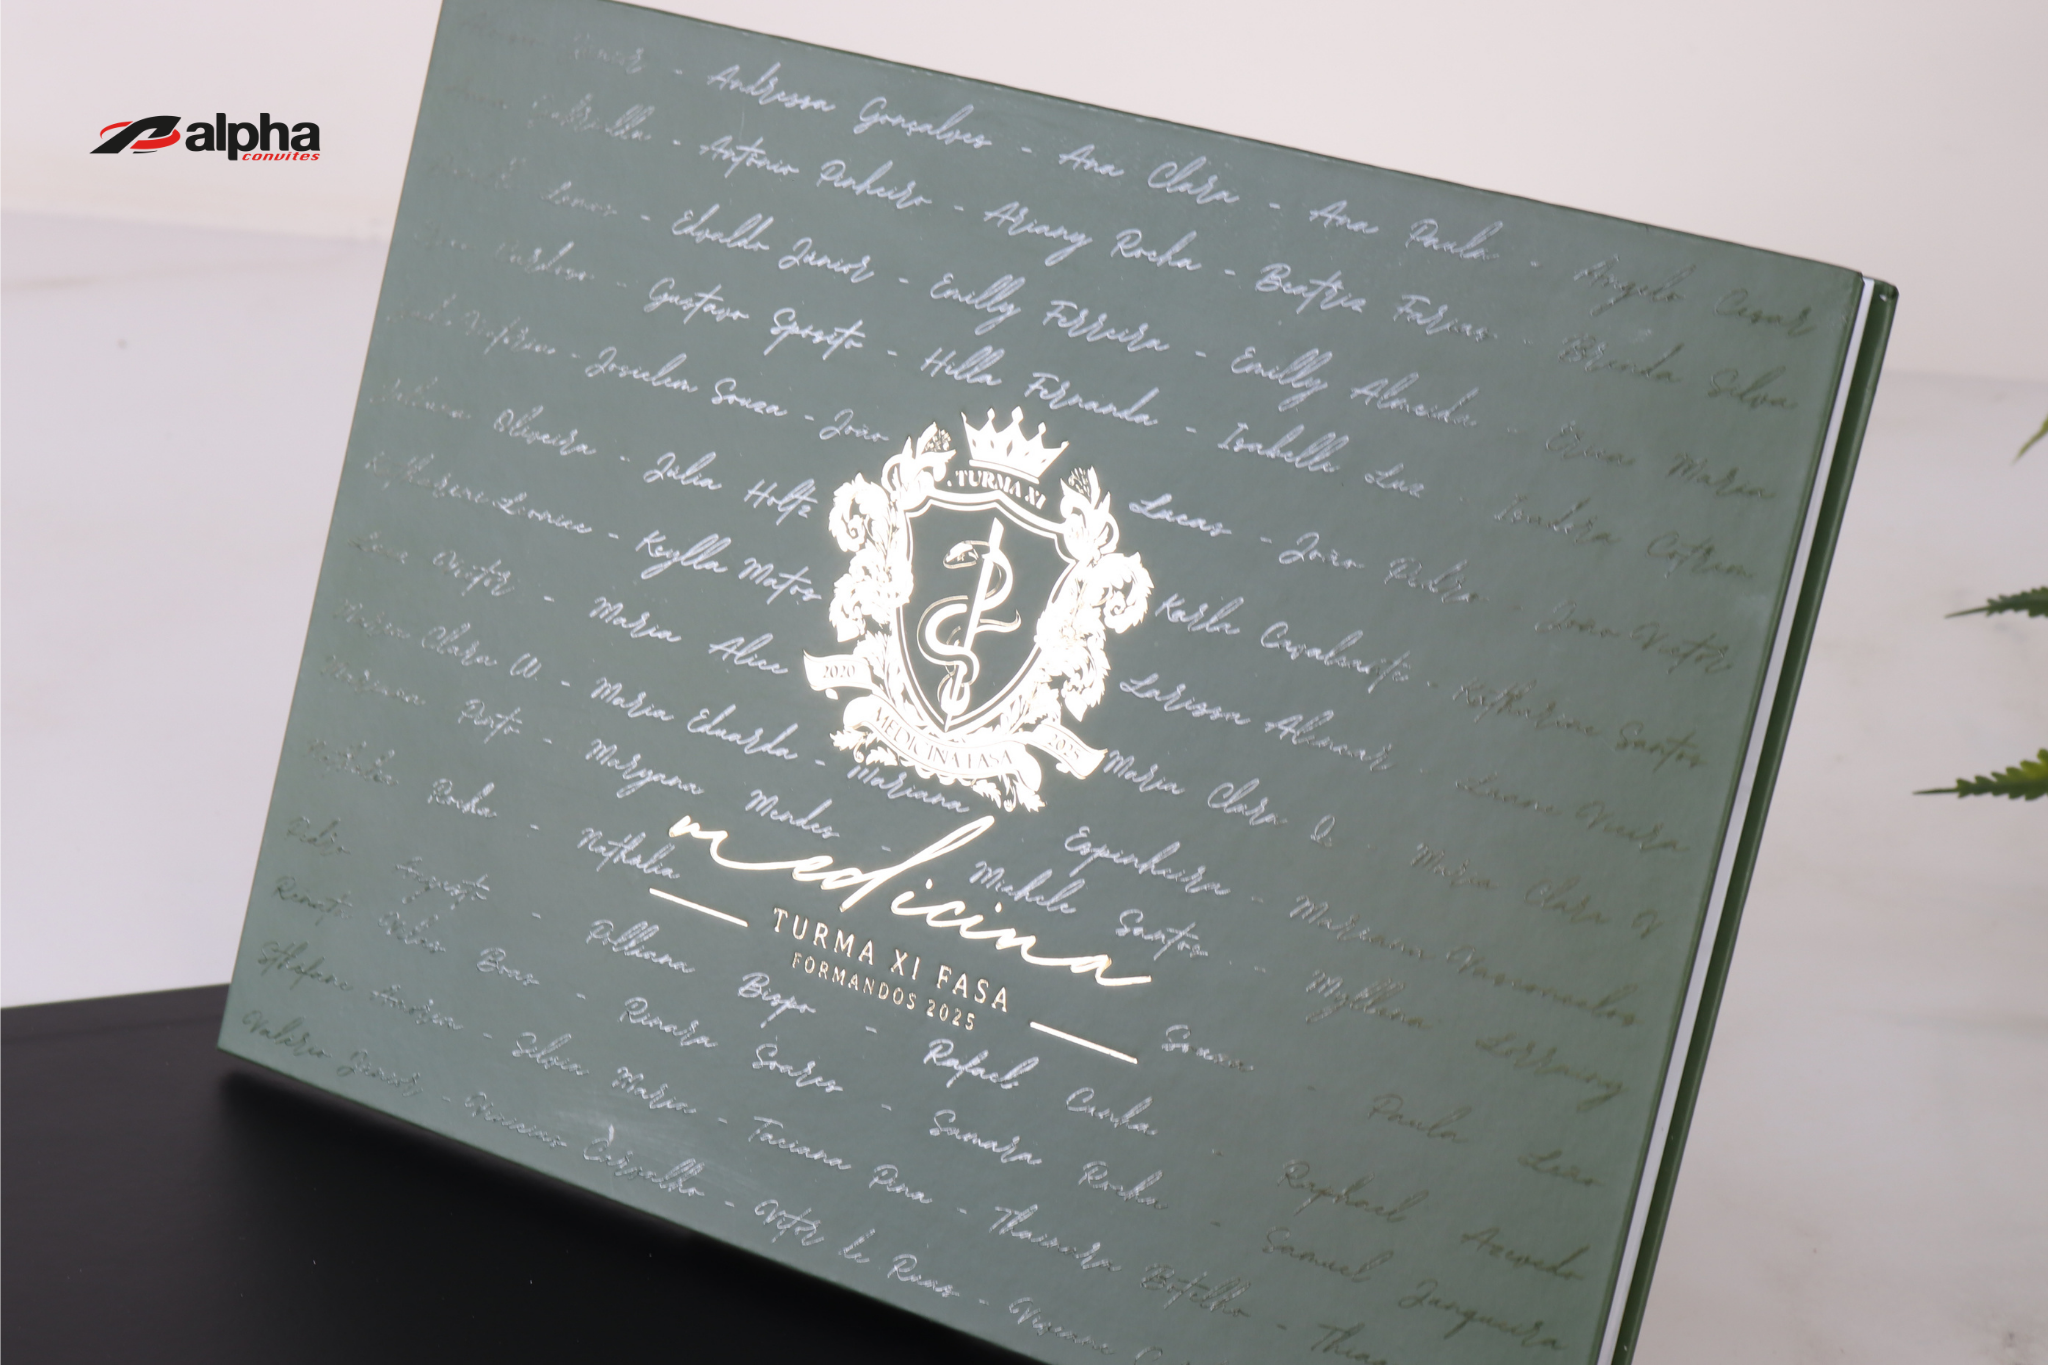 alpha
convites
Andressa Gonçalves - Ana Clara - Ana Paula - Angelo Cesar
- Antonio Pinheiro - Ariany Rocha - Beatriz Farias - Brenda Silva
- Edvaldo Junior - Emilly Ferreira - Emilly Almeida - Maria
Cardoso - Gustavo Sposito - Hilla Fernanda - Isabella Luz - Isadora Cotrim
- Josielem Souza - João Lucas - João Pedro - João Victor
Oliveira - Julia Holtz Karla Cavalcante - Katharine Santos
- Keylla Matos Larissa Alencar - Luana Vieira
Victor - Maria Alice Maria Clara D. - Maria Clara N
Clara W. - Maria Eduarda - Mariana Espinheira - Mariana Vasconcelos
Pinto - Maryana Mendes - Michele Santos - Myllena
Rocha - Nathalia Sousa - Paula
Pedro Augusto - Polliana Bispo - Rafael Cunha - Raphael Azevedo
Renata Vilas Boas - Rimara Soares - Samara Rocha - Samuel Janqueira
- Silvia Maria - Taciana Pina - Botelho -
Valério Junior - Vinicius Carvalho - Vitor de Rosas -
TURMA XI
2020
MEDICINA FASA
2025
medicina
TURMA XI FASA
FORMANDOS 2025